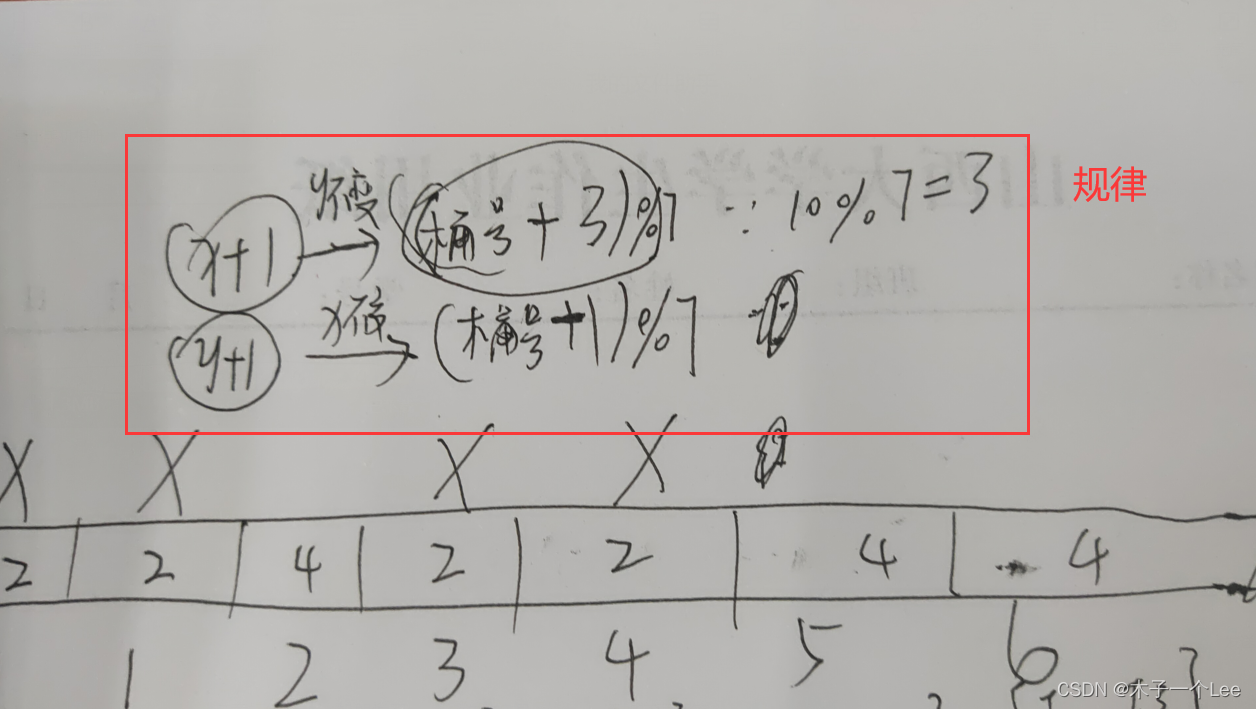 x+1 y不变 (桶号+3)%7 ∵ 10%7=3 规律
y+1 x不变 (桶号+1)%7
X X X X
2 2 4 2 2 4 4
1 2 3 4 5 6
CSDN @木子一个Lee